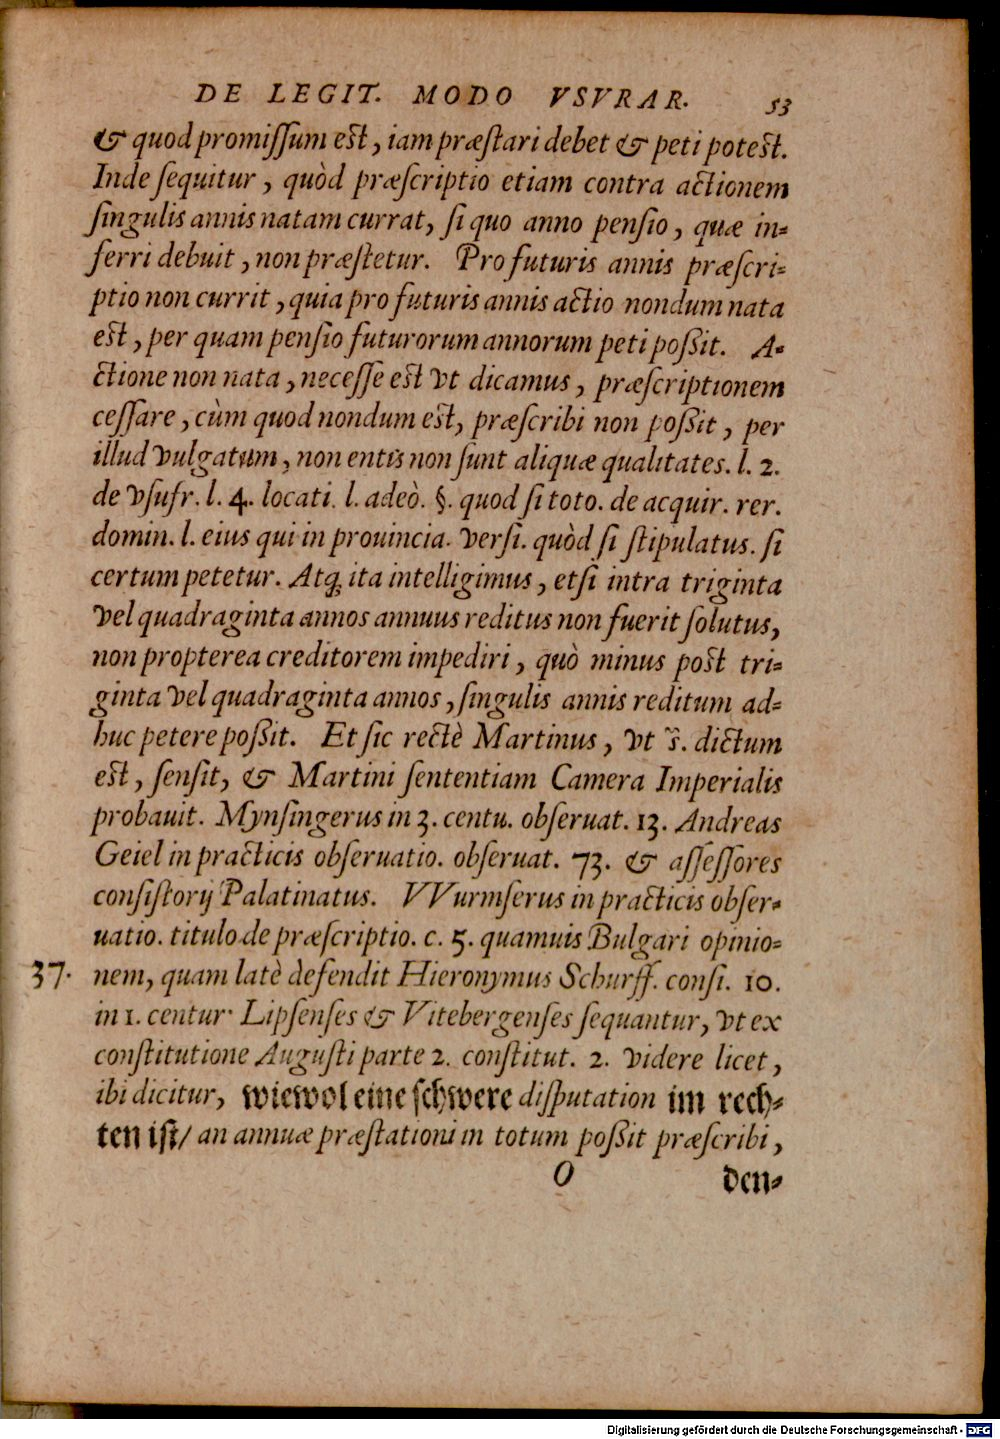 DE LEGIT. MODO VSVRAR. 53
& quod promiſſum eſt, iam præſtari debet & peti poteſt.
Inde ſequitur, quòd præſcriptio etiam contra actionem
ſingulis annis natam currat, ſi quo anno penſio, quæ in-
ferri debuit, non præſtetur. Pro futuris annis præſcri-
ptio non currit, quia pro futuris annis actio nondum nata
eſt, per quam penſio futurorum annorum peti poßit. A-
ctione non nata, neceſſe eſt vt dicamus, præſcriptionem
ceſſare, cùm quod nondum eſt, præſcribi non poßit, per
illud vulgatum, non entis non ſunt aliquæ qualitates. l. 2.
de vſufr. l. 4. locati. l. adeò. §. quod ſi toto. de acquir. rer.
domin. l. eius qui in prouincia. verſi. quòd ſi ſtipulatus. ſi
certum petetur. Atq; ita intelligimus, etſi intra triginta
vel quadraginta annos annuus reditus non fuerit ſolutus,
non propterea creditorem impediri, quò minus poſt tri-
ginta vel quadraginta annos, ſingulis annis reditum ad-
huc petere poßit. Et ſic rectè Martinus, vt s̃. dictum
eſt, ſenſit, & Martini ſententiam Camera Imperialis
probauit. Mynſingerus in 3. centu. obſeruat. 13. Andreas
Geiel in practicis obſeruatio. obſeruat. 73. & aſſeſſores
conſiſtorij Palatinatus. VVurmſerus in practicis obſer-
uatio. titulo de præſcriptio. c. 5. quamuis Bulgari opinio-
37. nem, quam latè defendit Hieronymus Schurff. conſi. 10.
in 1. centur. Lipſenſes & Vitebergenſes ſequantur, vt ex
conſtitutione Auguſti parte 2. conſtitut. 2. videre licet,
ibi dicitur, wiewol eine ſchwere diſputation im rech-
ten iſt/ an annuæ præſtationi in totum poßit præſcribi,
O den-
Digitalisierung gefördert durch die Deutsche Forschungsgemeinschaft - DFG